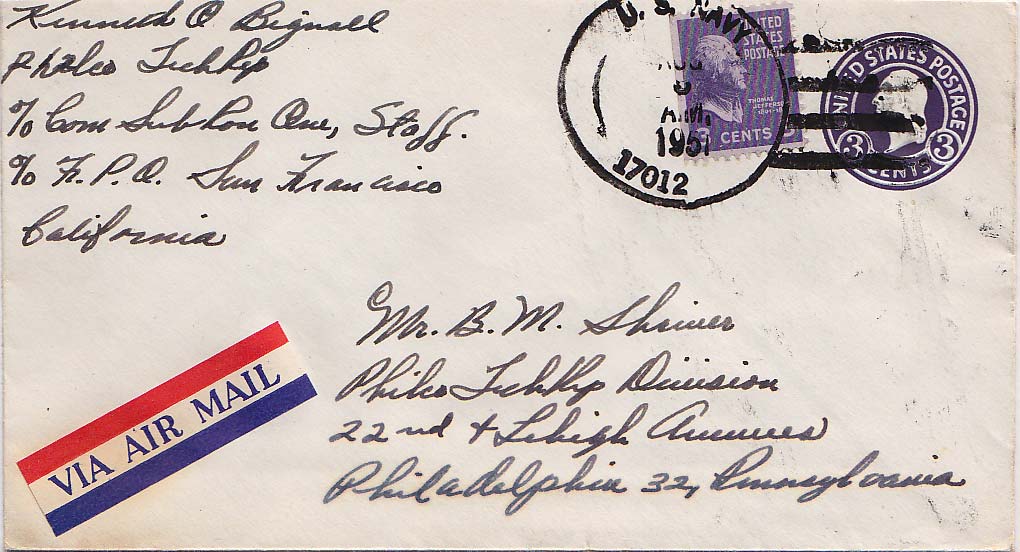 Kenneth O Bignall
Philco TechRep
% Com Sub Ron One, Staff.
% F.P.O. San Francisco
California
U. S. NAVY
AUG
A.M.
1951
17012
UNITED
STATES
POSTAGE
THOMAS
JEFFERSON
3 CENTS 3
UNITED STATES POSTAGE
3 CENTS 3
Mr. B. M. Shriver
Philco TechRep Division
22nd & Lehigh Avenues
Philadelphia 32, Pennsylvania
VIA AIR MAIL